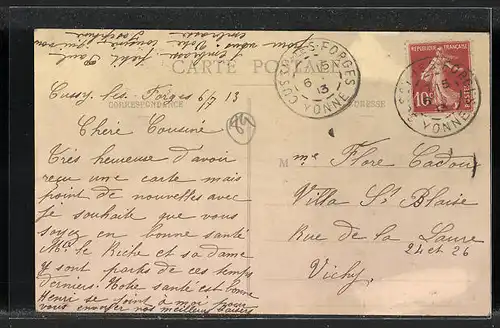 CARTE POSTALE
CORRESPONDANCE
ADRESSE
Cussy les Forges 6/7 13
Chère Cousine
Très heureuse d'avoir
reçu une carte mais
point de nouvelles avec
je souhaite que vous
soyez en bonne santé
Mr le Riche et sa dame
y sont partis de ces temps
derniers. Notre santé est bonne
Henri se joint à moi pour
vous envoyer nos meilleurs baisers
pour vous. Votre cousine
embrasse
CUSSY-LES-FORGES
15
6 -
13
YONNE
RÉPUBLIQUE FRANÇAISE
10c
POSTES
M me Flore Cadoux
Villa St Blaise
Rue de la Laure
24 et 26
Vichy